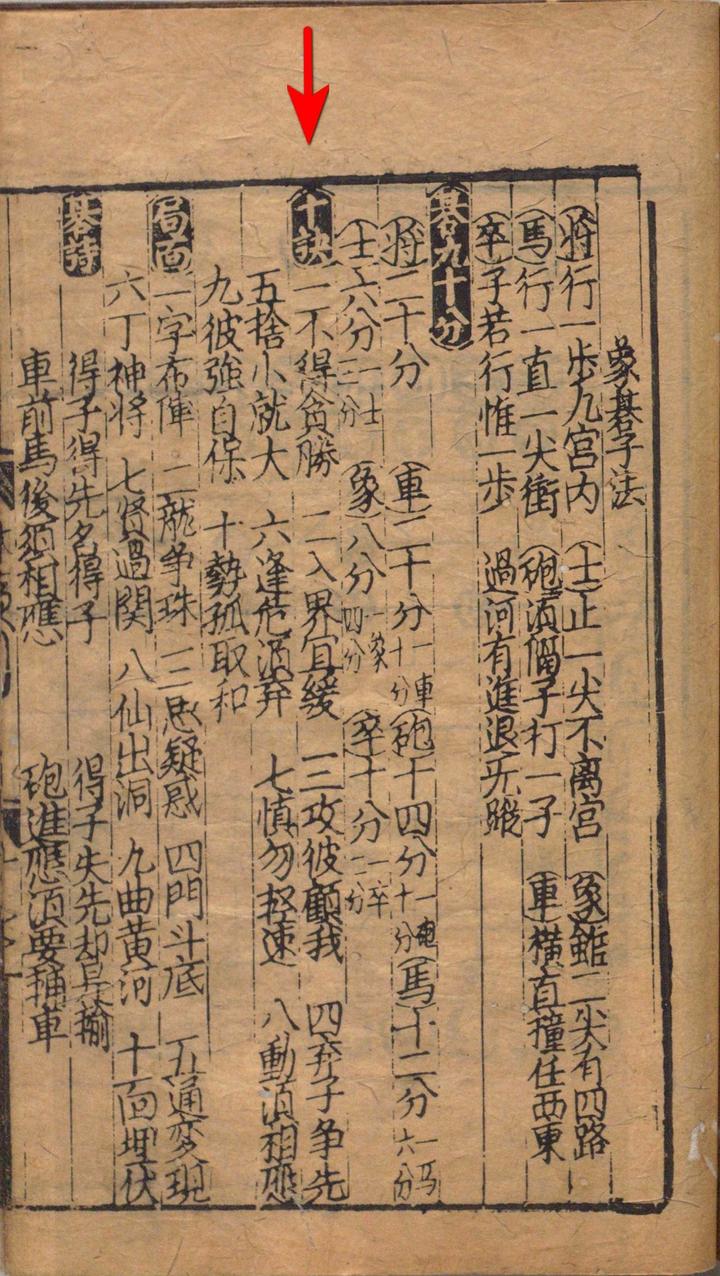 象棊子法
將行一步九宮内 士止一尖不离宮 象䠂二尖有四路
馬行一直一尖衝 砲湏隔子打一子 車横直撞任西東
卒子若行惟一步 過河有進退无蹤
棊九十分
將二十分 車二十分一車十分 砲十四分一砲十分 馬十二分一馬六分
士六分一士三分 象八分一象四分 卒十分一卒二分
十訣 一不得貪勝 二入界宜緩 三攻彼顧我 四弃子争先
五捨小就大 六逢危湏弃 七慎勿輕速 八動湏相應
九彼強自保 十勢孤取和
局面 一字布陣 二龍争珠 三思疑惑 四門斗底 五通変現
六丁神将 七贤過関 八仙出洞 九曲黄河 十面埋伏
棊詩 得子得先名得子 得子失先却是輸
車前馬後須相應 砲進應湏要輔車